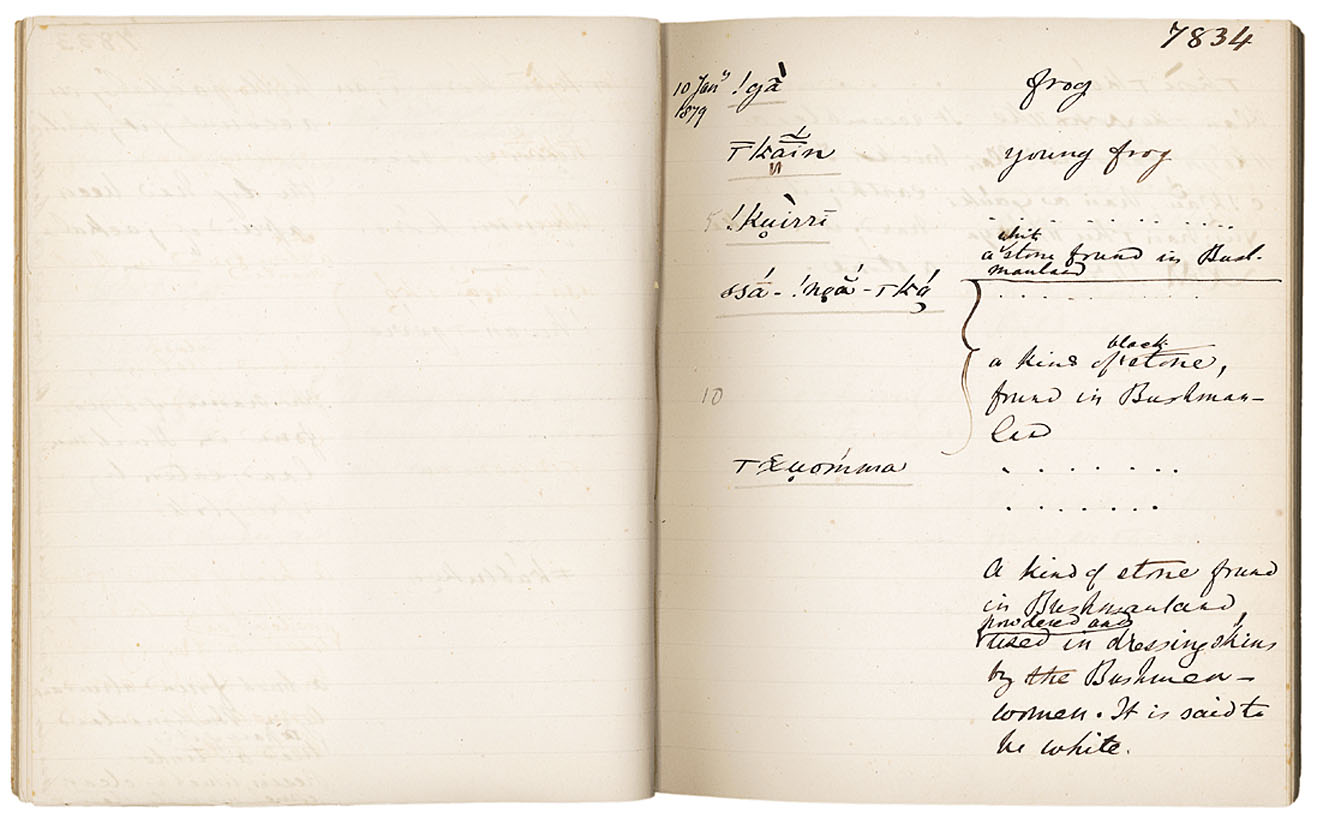 7834
10 Jany 1879 !gā̀ frog
Ͳkāĭn young frog
5 !kṷ̀irrī . . . . . . .
white
a stone found in Bush-
manland
ssā́-!ngắ-Ͳká̧ . . . . . . .
black
a kind of stone,
found in Bushman-
land
10
. . . . . . .
. . . . . . .
A kind of stone found
in Bushmanland,
powdered and
used in dressing skins
by the Bushmen-
women. It is said to
be white.